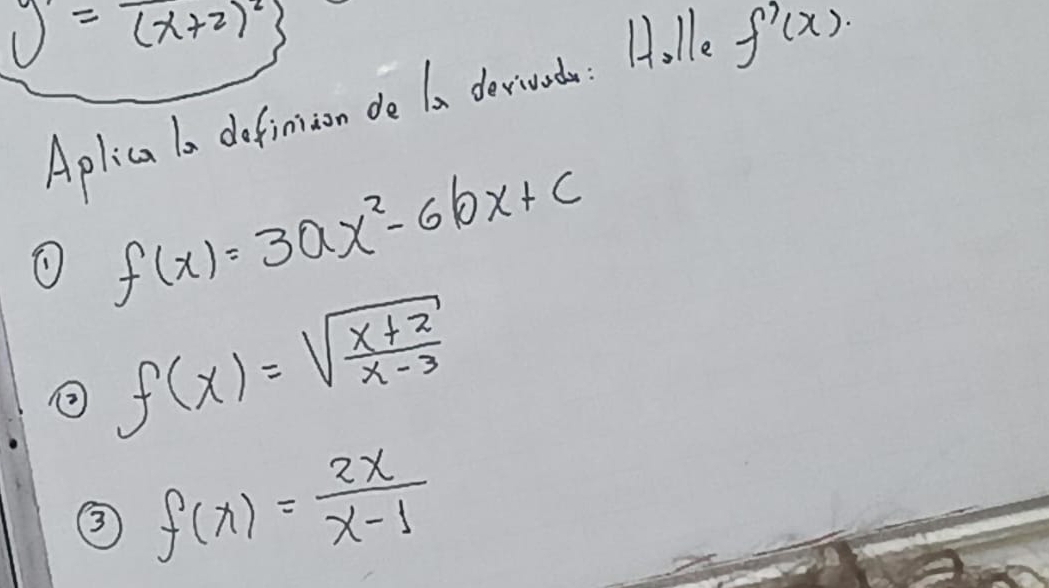 y = / (x+2)²
Aplica la definición de la derivada: Halle f'(x).
① f(x) = 3ax² - 6bx + c
② f(x) = √((x+2)/(x-3))
③ f(x) = 2x/(x-1)